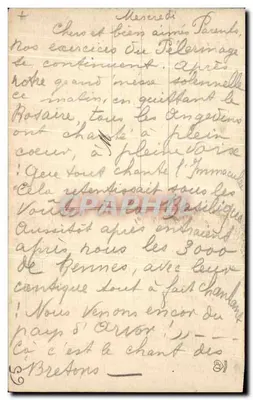 + Mercredi
Chers et bien aimés Parents,
Nos exercices du Pèlerinage
se continuent. Après
notre grand'messe solennelle
ce matin, en quittant le
Rosaire, tous les Angevins
ont chanté à plein
coeur, à pleine voix
! Que tout chante l'Immaculée
Cela retentissait sous les
Voûtes de la Basilique
Aussitôt après entraient
après nous les 3000
de Rennes, avec leur
cantique tout à fait charmant
! Nous venons encor du
pays d'Arvor !
Ça c'est le chant des
Bretons —
CPAPHIL